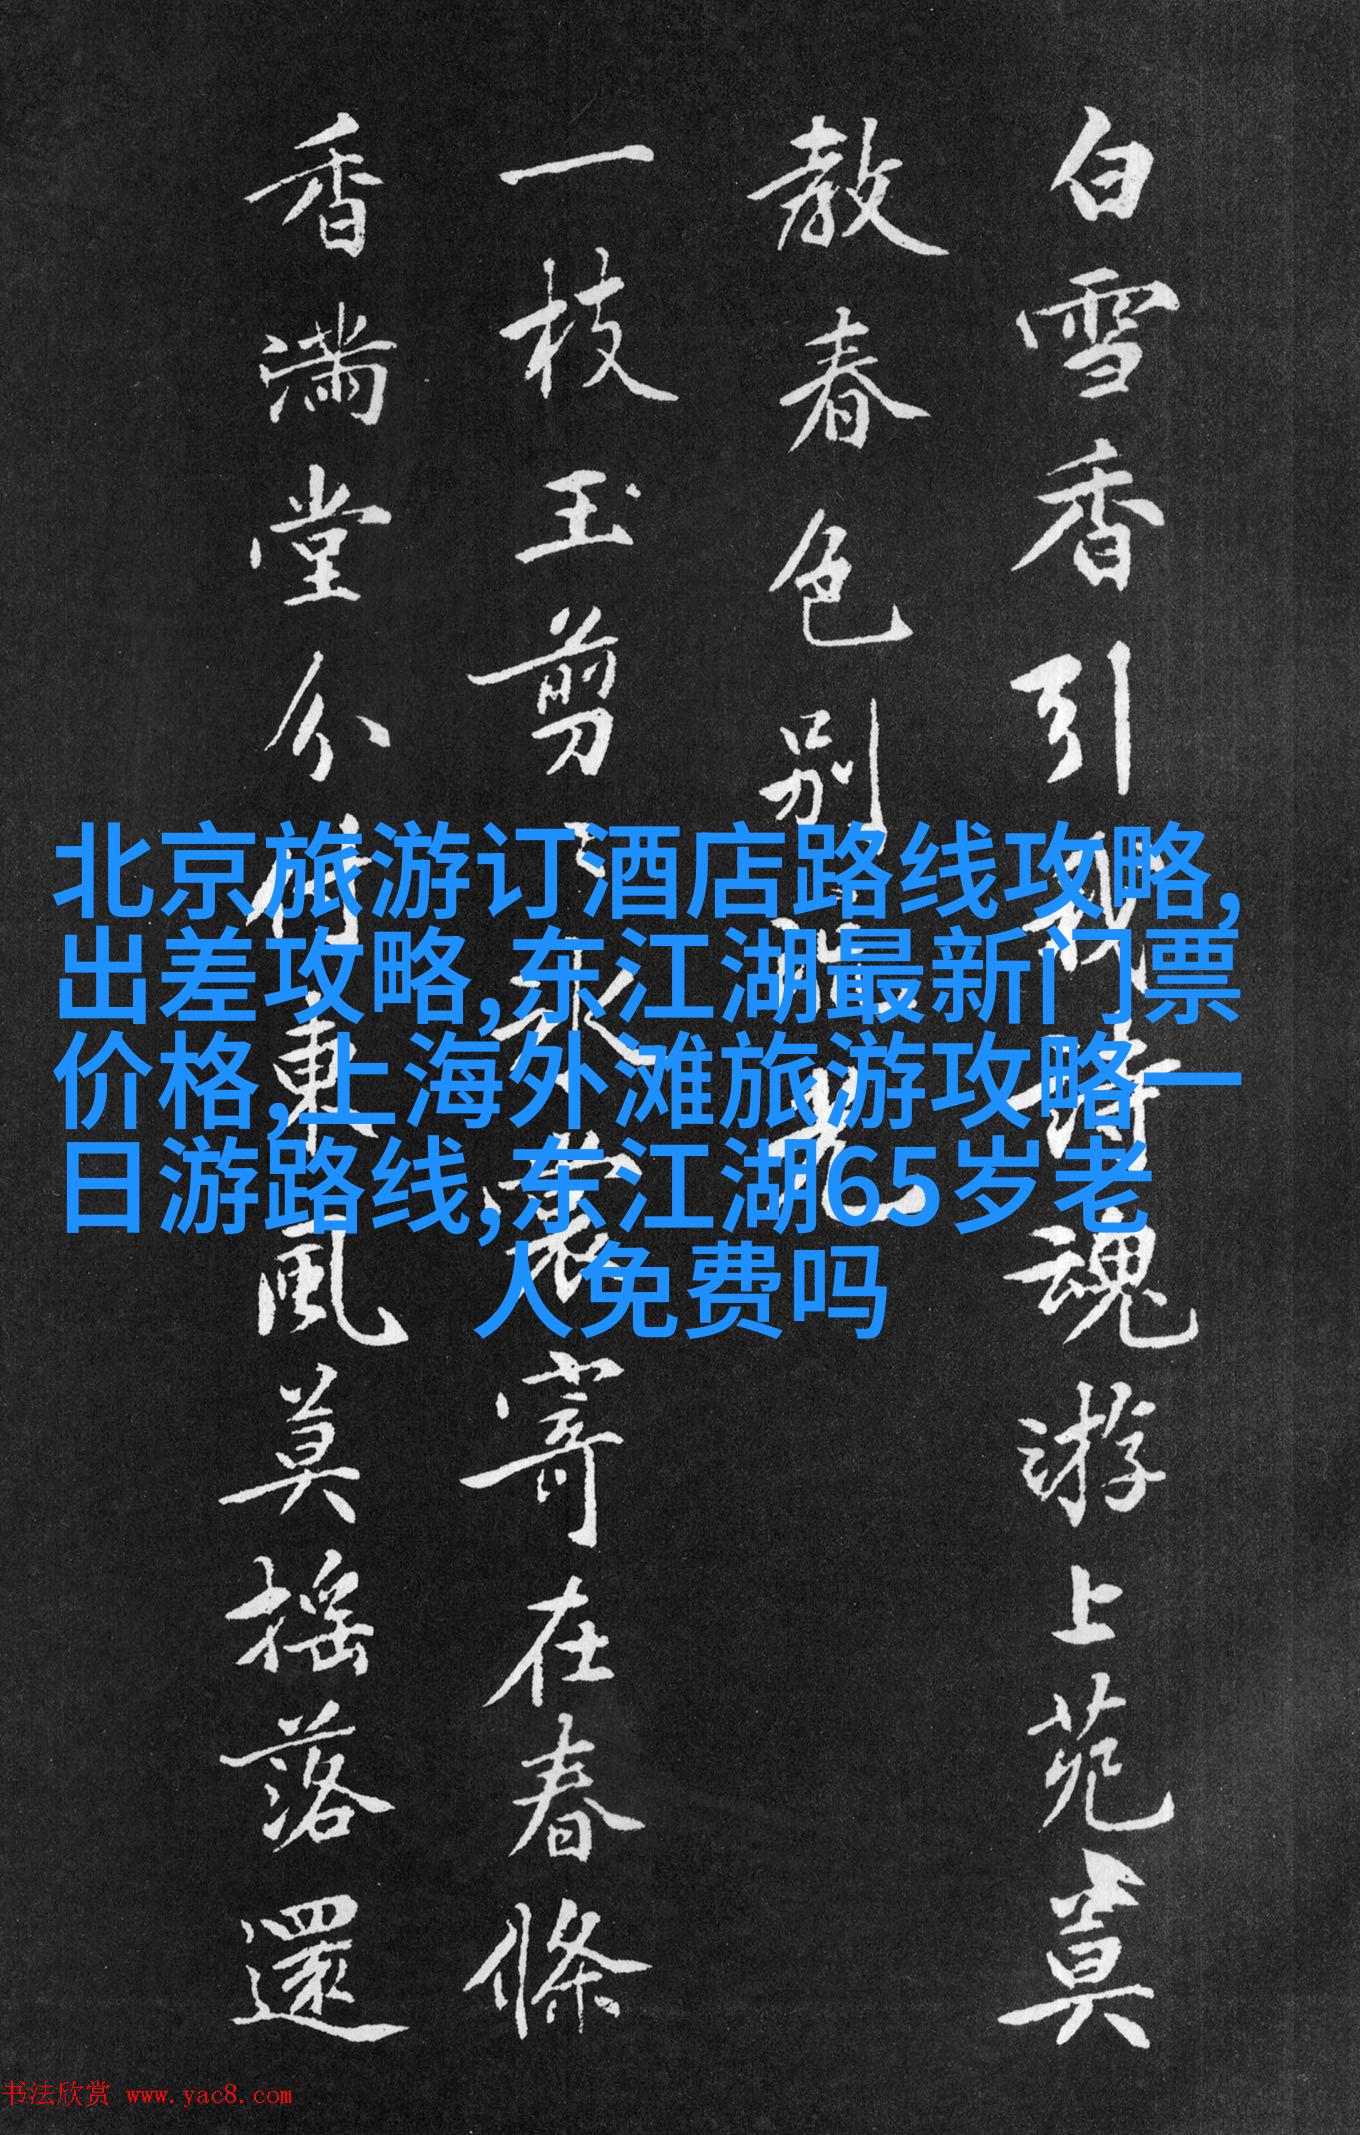 白雪香引我詩魂游上苑莫
教春色别
一枝玉剪裳寄在春條
香滿堂分付東風莫摇落還
北京旅游订酒店路线攻略,
出差攻略,东江湖最新门票
价格,上海外滩旅游攻略一
日游路线,东江湖65岁老
人免费吗
书法欣赏 www.yac8.com